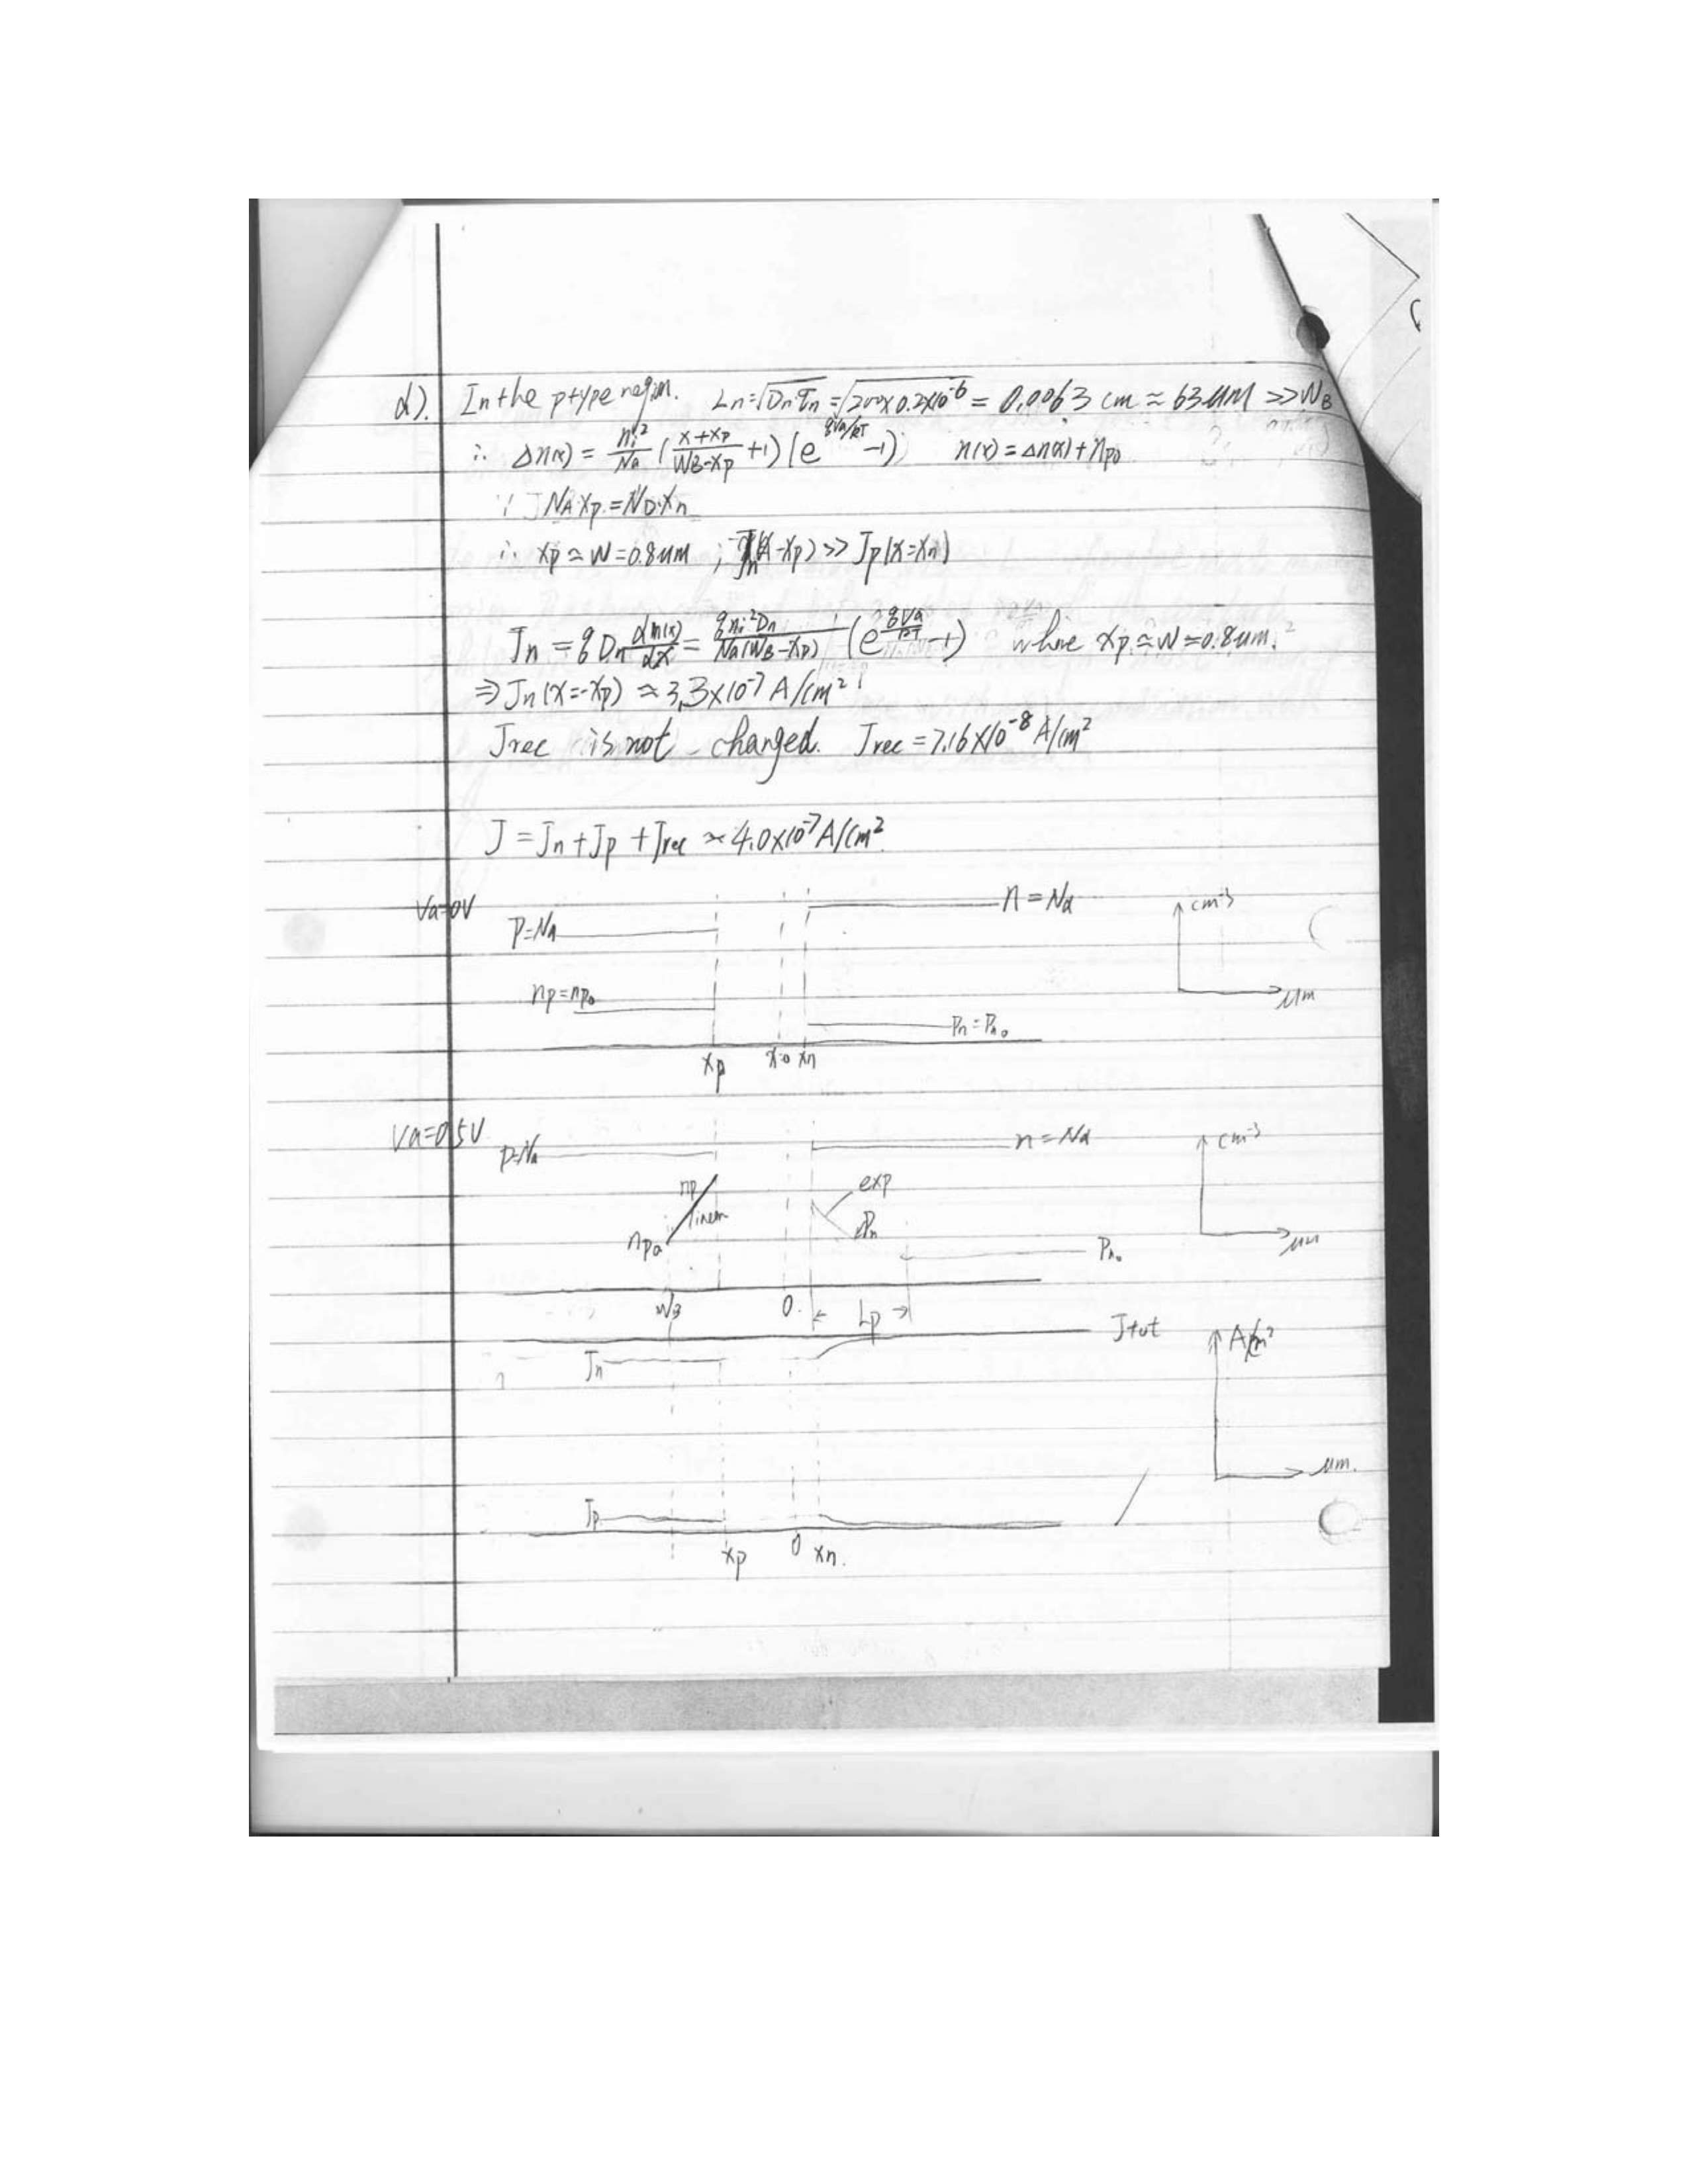 d). In the p type region. Ln=√Dn·τn =√200×0.2×10^-6 = 0.0063 cm ≈ 63 μM >> WB
∴ Δn(x) = ni²/Na (x+xp/WB-xp +1)(e^qVa/kT -1) n(x)=Δn(x)+npo
∵ NA·Xp = ND·Xn
∴ xp ≃ W = 0.8um ; Jn(-xp) >> Jp(x=xn)
Jn = q Dn dn(x)/dx = q ni² Dn/Na(WB-Xp) (e^qVa/kT -1) where xp ≃ W ≃ 0.8um.
⇒ Jn(x=-xp) ≈ 3.3×10^-7 A/cm²
Jrec is not changed. Jrec = 7.16×10^-8 A/cm²
J = Jn + Jp + Jrec ≃ 4.0×10^-7 A/cm²
Va=0V P=Na n = Nd cm^-3
np=npo μm
Pn=Pno
xp x=0 xn
Va=0.5V P=Na n=Nd cm^-3
np exp
linear Pn
npo Pno μm
WB 0. Lp
Jtot A/cm²
Jn
μm.
Jp
xp 0 xn.